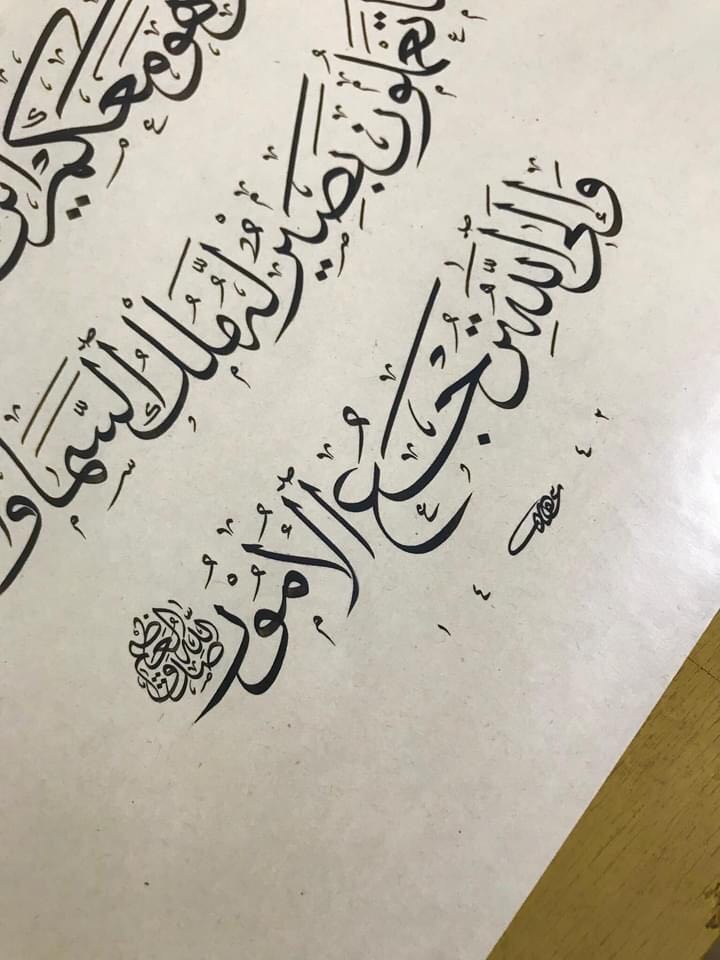 وَهُوَ مَعَكُمْ
تَعْمَلُونَ بَصِيرٌ لَهُ مُلْكُ السَّمَاوَا
وَإِلَى اللَّهِ تُرْجَعُ الْأُمُورُ
صدق الله العظيم
١٤ ٤٢